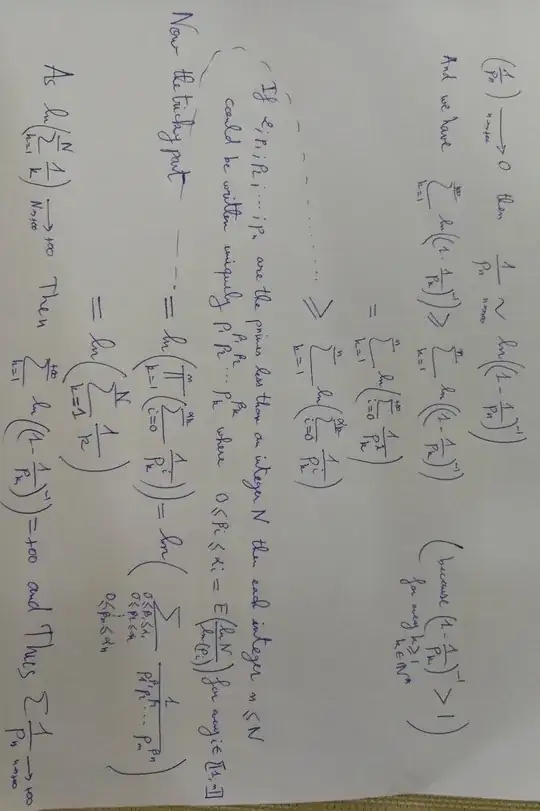 (1/pₙ) ⟶ 0 n→+∞ then 1/pₙ ~ n→+∞ ln((1 - 1/pₙ)⁻¹)
And we have Σ_{k=1}^{+∞} ln((1 - 1/p_k)⁻¹) ≥ Σ_{k=1}^{n} ln((1 - 1/p_k)⁻¹) (because (1 - 1/p_k)⁻¹ > 1 for any k ≥ 1 k ∈ ℕ*)
= Σ_{k=1}^{n} ln(Σ_{i=0}^{+∞} 1/p_k^i)
≥ Σ_{k=1}^{n} ln(Σ_{i=0}^{αk} 1/p_k^i)
If p₁; p₂; ...; pₙ are the primes less than an integer N then each integer n ≤ N
could be written uniquely p₁^β₁ p₂^β₂ ... p_k^β_k where 0 ≤ βi ≤ αi = E(ln N / ln(pi)) for any i ∈ [[1,n]]
Now the tricky part - - - = ln(Π_{k=1}^{n} (Σ_{i=0}^{αk} 1/p_k^i)) = ln(Σ_{0≤β₁≤α₁ 0≤β₂≤α₂ ⋮ 0≤βₙ≤αₙ} 1/(p₁^β₁ p₂^β₂ ... pₙ^βₙ))
= ln(Σ_{k=1}^{N} 1/k)
As ln(Σ_{k=1}^{N} 1/k) ⟶ +∞ N→+∞ Then Σ_{k=1}^{+∞} ln((1 - 1/p_k)⁻¹) = +∞ and Thus Σ 1/pₙ ⟶ +∞ n→+∞